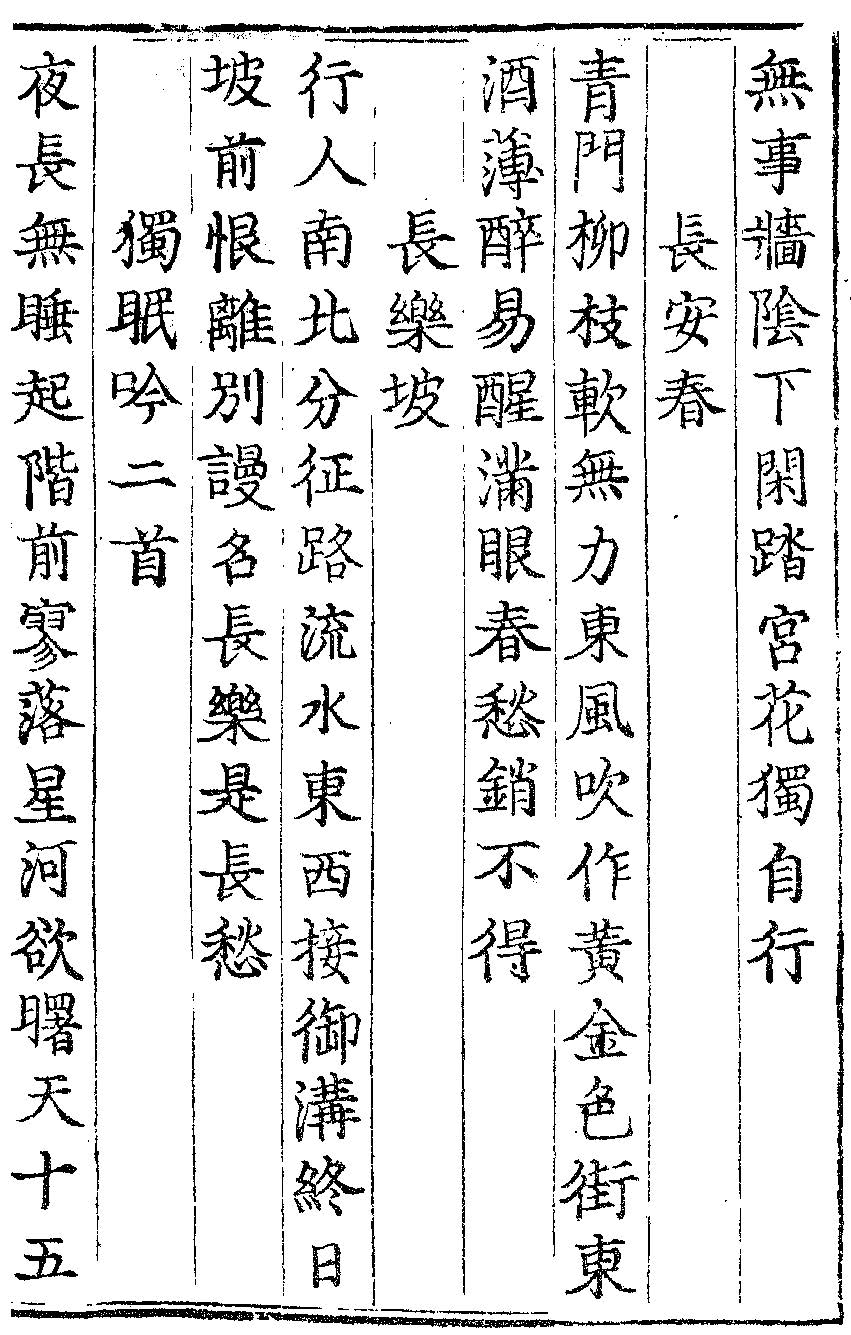 無事牆陰下閑踏宮花獨自行
長安春
青門柳枝軟無力東風吹作黃金色街東
酒薄醉易醒滿眼春愁銷不得
長樂坡
行人南北分征路流水東西接御溝終日
坡前恨離別謾名長樂是長愁
獨眠吟二首
夜長無睡起階前寥落星河欲曙天十五